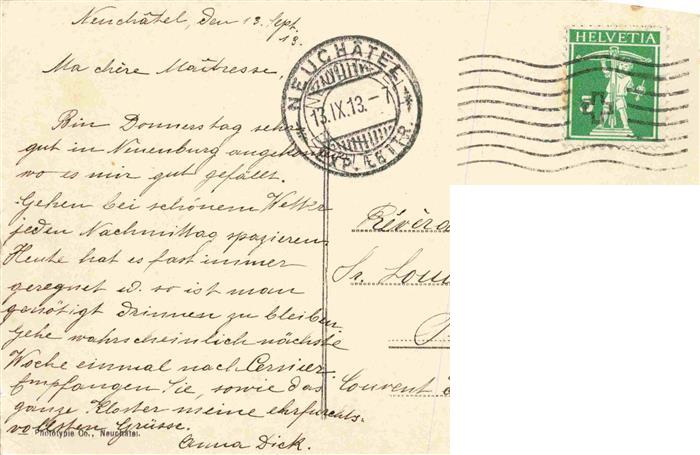 Neuchâtel, den 13. Sept.
13.
Ma chère Maîtresse.
Bin Donnerstag sehr
gut in Neuenburg
wo es mir gut gefällt.
Gehen bei schönem Wetter
jeden Nachmittag spazieren
Heute hat es fast immer
geregnet u. so ist man
genötigt drinnen zu bleiben.
Gehe wahrscheinlich nächste
Woche einmal nach Cernier.
Empfangen Sie, sowie das
ganze Kloster meine ehrfurchts-
vollsten Grüsse.
Anna Dick.
Phototypie Co., Neuchâtel.
NEUCHÂTEL
13.IX.13.-7
EXP. LETTR.
HELVETIA
5
Révér
Sr. Loui
Couvent